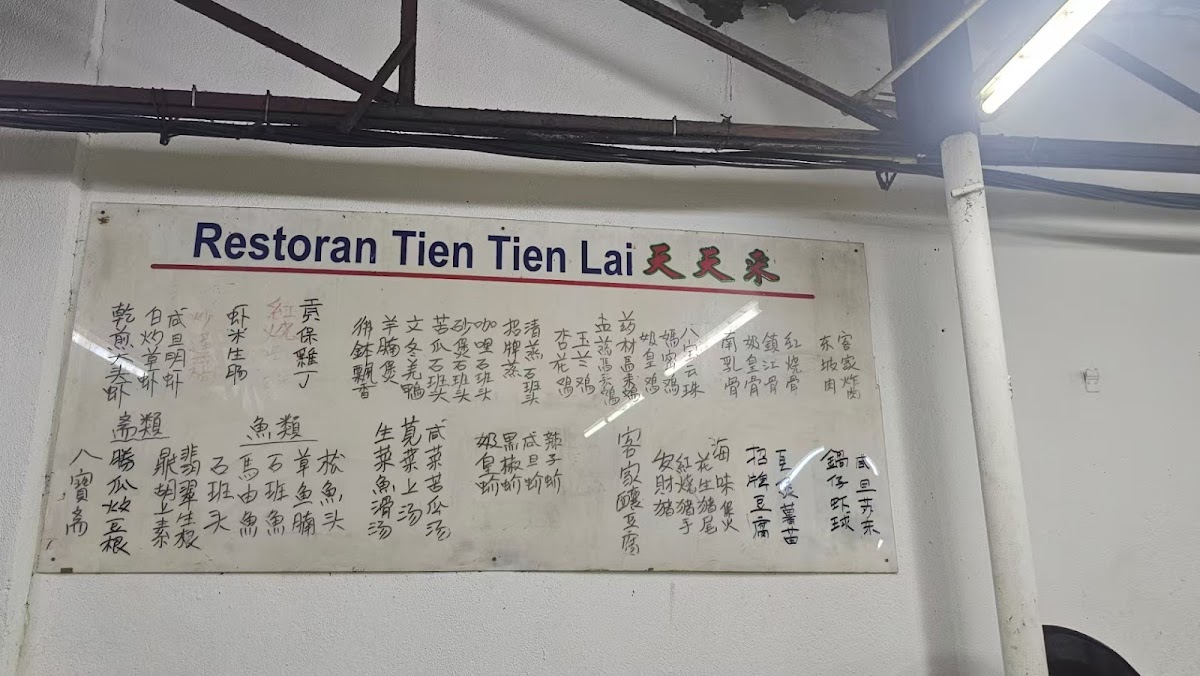 Restoran Tien Tien Lai 天天来
客家炸肉
东坡肉
红烧骨
鎮江骨
奶皇骨
南乳骨
八宝云珠
媽蜜鸡
奶皇鸡
药材馬来鸡
玉兰鸡
杏花鸡
清蒸石班头
招牌蒸
咖喱石班头
砂煲石班头
苦瓜石班头
文冬羌鴨
羊腩煲
佛鉢飄香
贡保雞丁
紅燒
虾米生肠
咸旦明虾
白炒草虾
乾煎大头虾
咸旦苏东
鍋仔虾球
豆炎蕃苗
招牌豆腐
海味煲
花生猪尾
紅燒猪手
发財猪
客家釀豆腐
辣子蚧
咸旦蚧
黑椒蚧
奶皇蚧
咸菜苦瓜汤
苋菜上汤
生菜魚滑汤
魚類
松魚头
草魚腩
石班魚
馬由魚
石班头
斋類
翡翠生根
鼎胡上素
勝瓜炒豆根
八寶斋